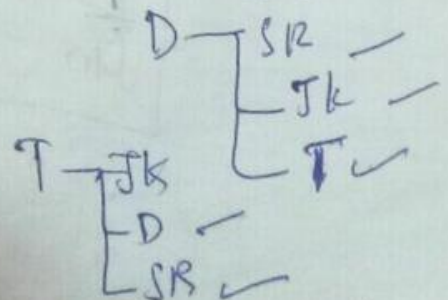 D SR
JK
T
T JK
D
SR